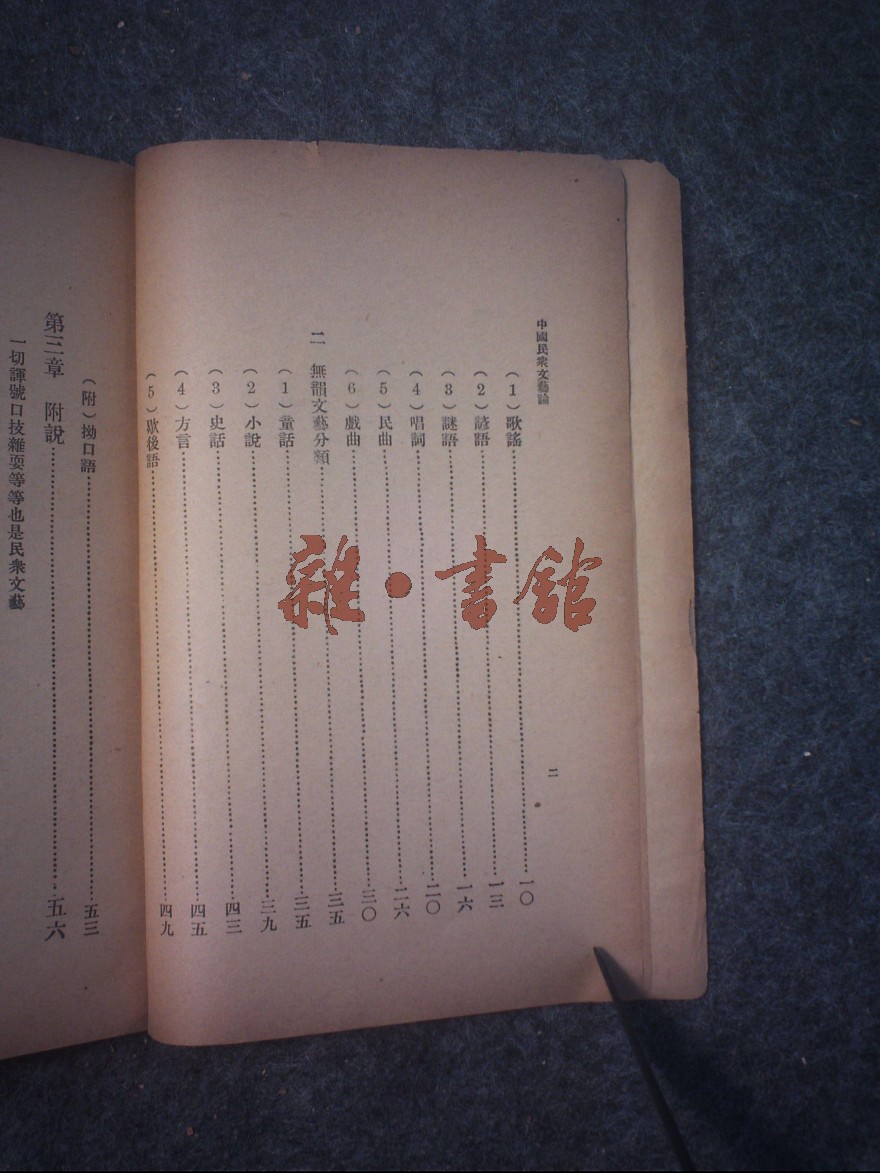 中國民衆文藝論
二
(1)歌謠 一〇
(2)諺語 一三
(3)謎語 一六
(4)唱詞 二〇
(5)民曲 二六
(6)戲曲 三〇
二 無韻文藝分類 三五
(1)童話 三五
(2)小說 三九
(3)史話 四三
(4)方言 四五
(5)歇後語 四九
(附)拗口語 五三
第三章 附說 五六
一切諢號口技雜耍等等也是民衆文藝
雜·書館